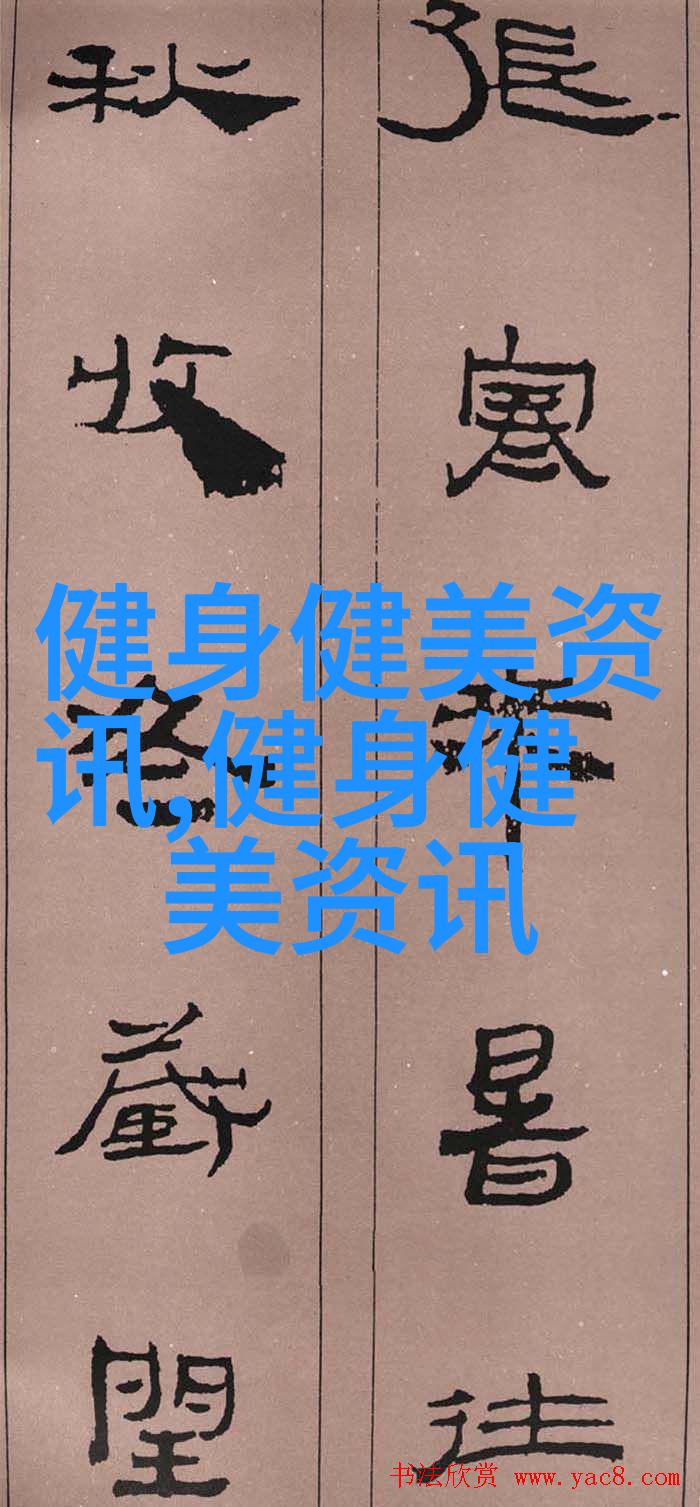 張寒来暑往
秋收冬藏閏
健身健美资
讯,健身健
美资讯
书法欣赏 www.yac8.com